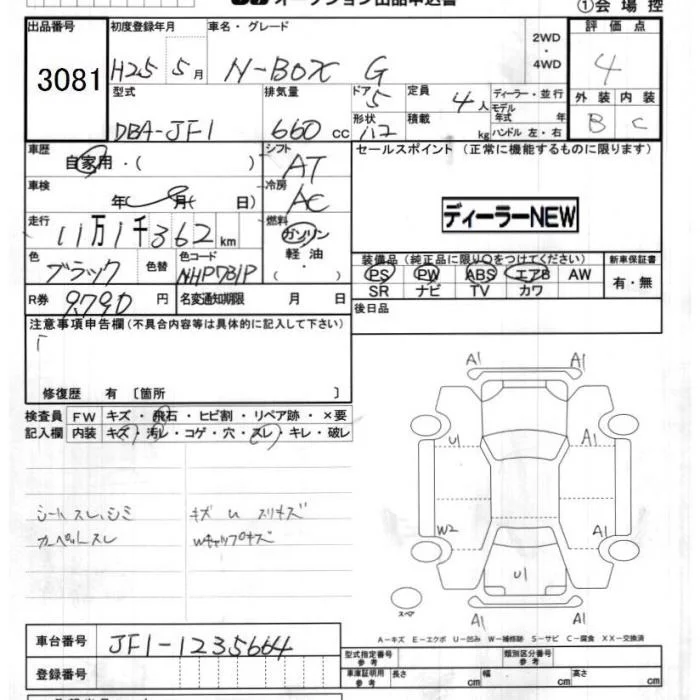 オークション出品申込書
①会場控
出品番号
3081
初度登録年月
H25 5月
車名・グレード
N-BOX G
2WD
・
4WD
評価点
4
型式
DBA-JF1
排気量
660 cc
ドア
5
形状
定員
4人
積載
kg
ディーラー・並行
モデル
年式 年
ハンドル 左・右
外装 内装
B C
車歴
自家用・( )
シフト
AT
セールスポイント (正常に機能するものに限ります)
車検
年 月( 日)
冷房
AC
ディーラーNEW
走行
11万1千362km
燃料
ガソリン
軽油
( )
色
ブラック
色替
色コード
NHP731P
装備品(純正品に限り○をつけてください)
PS PW ABS エアB AW
SR ナビ TV カワ
新車保証書
有・無
R券
9790円
名変通知期限 月 日
後日品
注意事項申告欄(不具合内容等は具体的に記入して下さい)
修復歴 有 〔箇所 〕
検査員
記入欄
FW キズ・飛石・ヒビ割・リペア跡・×要
内装 キズ・汚レ・コゲ・穴・スレ・キレ・破レ
シートスレ、シミ
カーペットスレ
キズ U スリキズ
Wキャップキズ
A1 A1
U1 A1
W2 A1
U1
A1 A1
スペア
A-キズ E-エクボ U-凹み W-補修跡 S-サビ C-腐食 XX-交換済
車台番号
JF1-1235664
登録番号
型式指定番号
参考
類別区分番号
参考
車庫証明用
参考
長さ cm
幅 cm
高さ cm